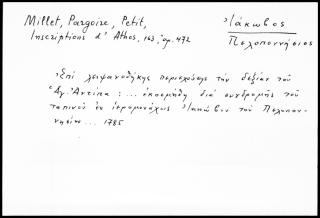 Millet, Pargoire, Petit,
Ἰάκωβος
Inscriptions d'Athos, 163, ἀρ. 472
Πελοποννήσιος
Ἐπὶ λειψανοθήκης περιεχούσης τὴν δεξιὰν τοῦ
Ἁγ. Ἀντίπα : ... ἐκοσμήθη διὰ συνδρομῆς τοῦ
ταπινοῦ ἐν ἱερομονάχοις Ἰακώβου τοῦ Πελοπον-
νησίου ... 1785